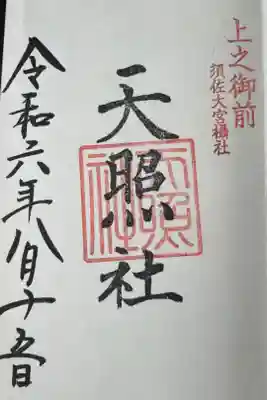 上之御前
須佐大宮摂社
天照社
天照社
令和六年八月十五日